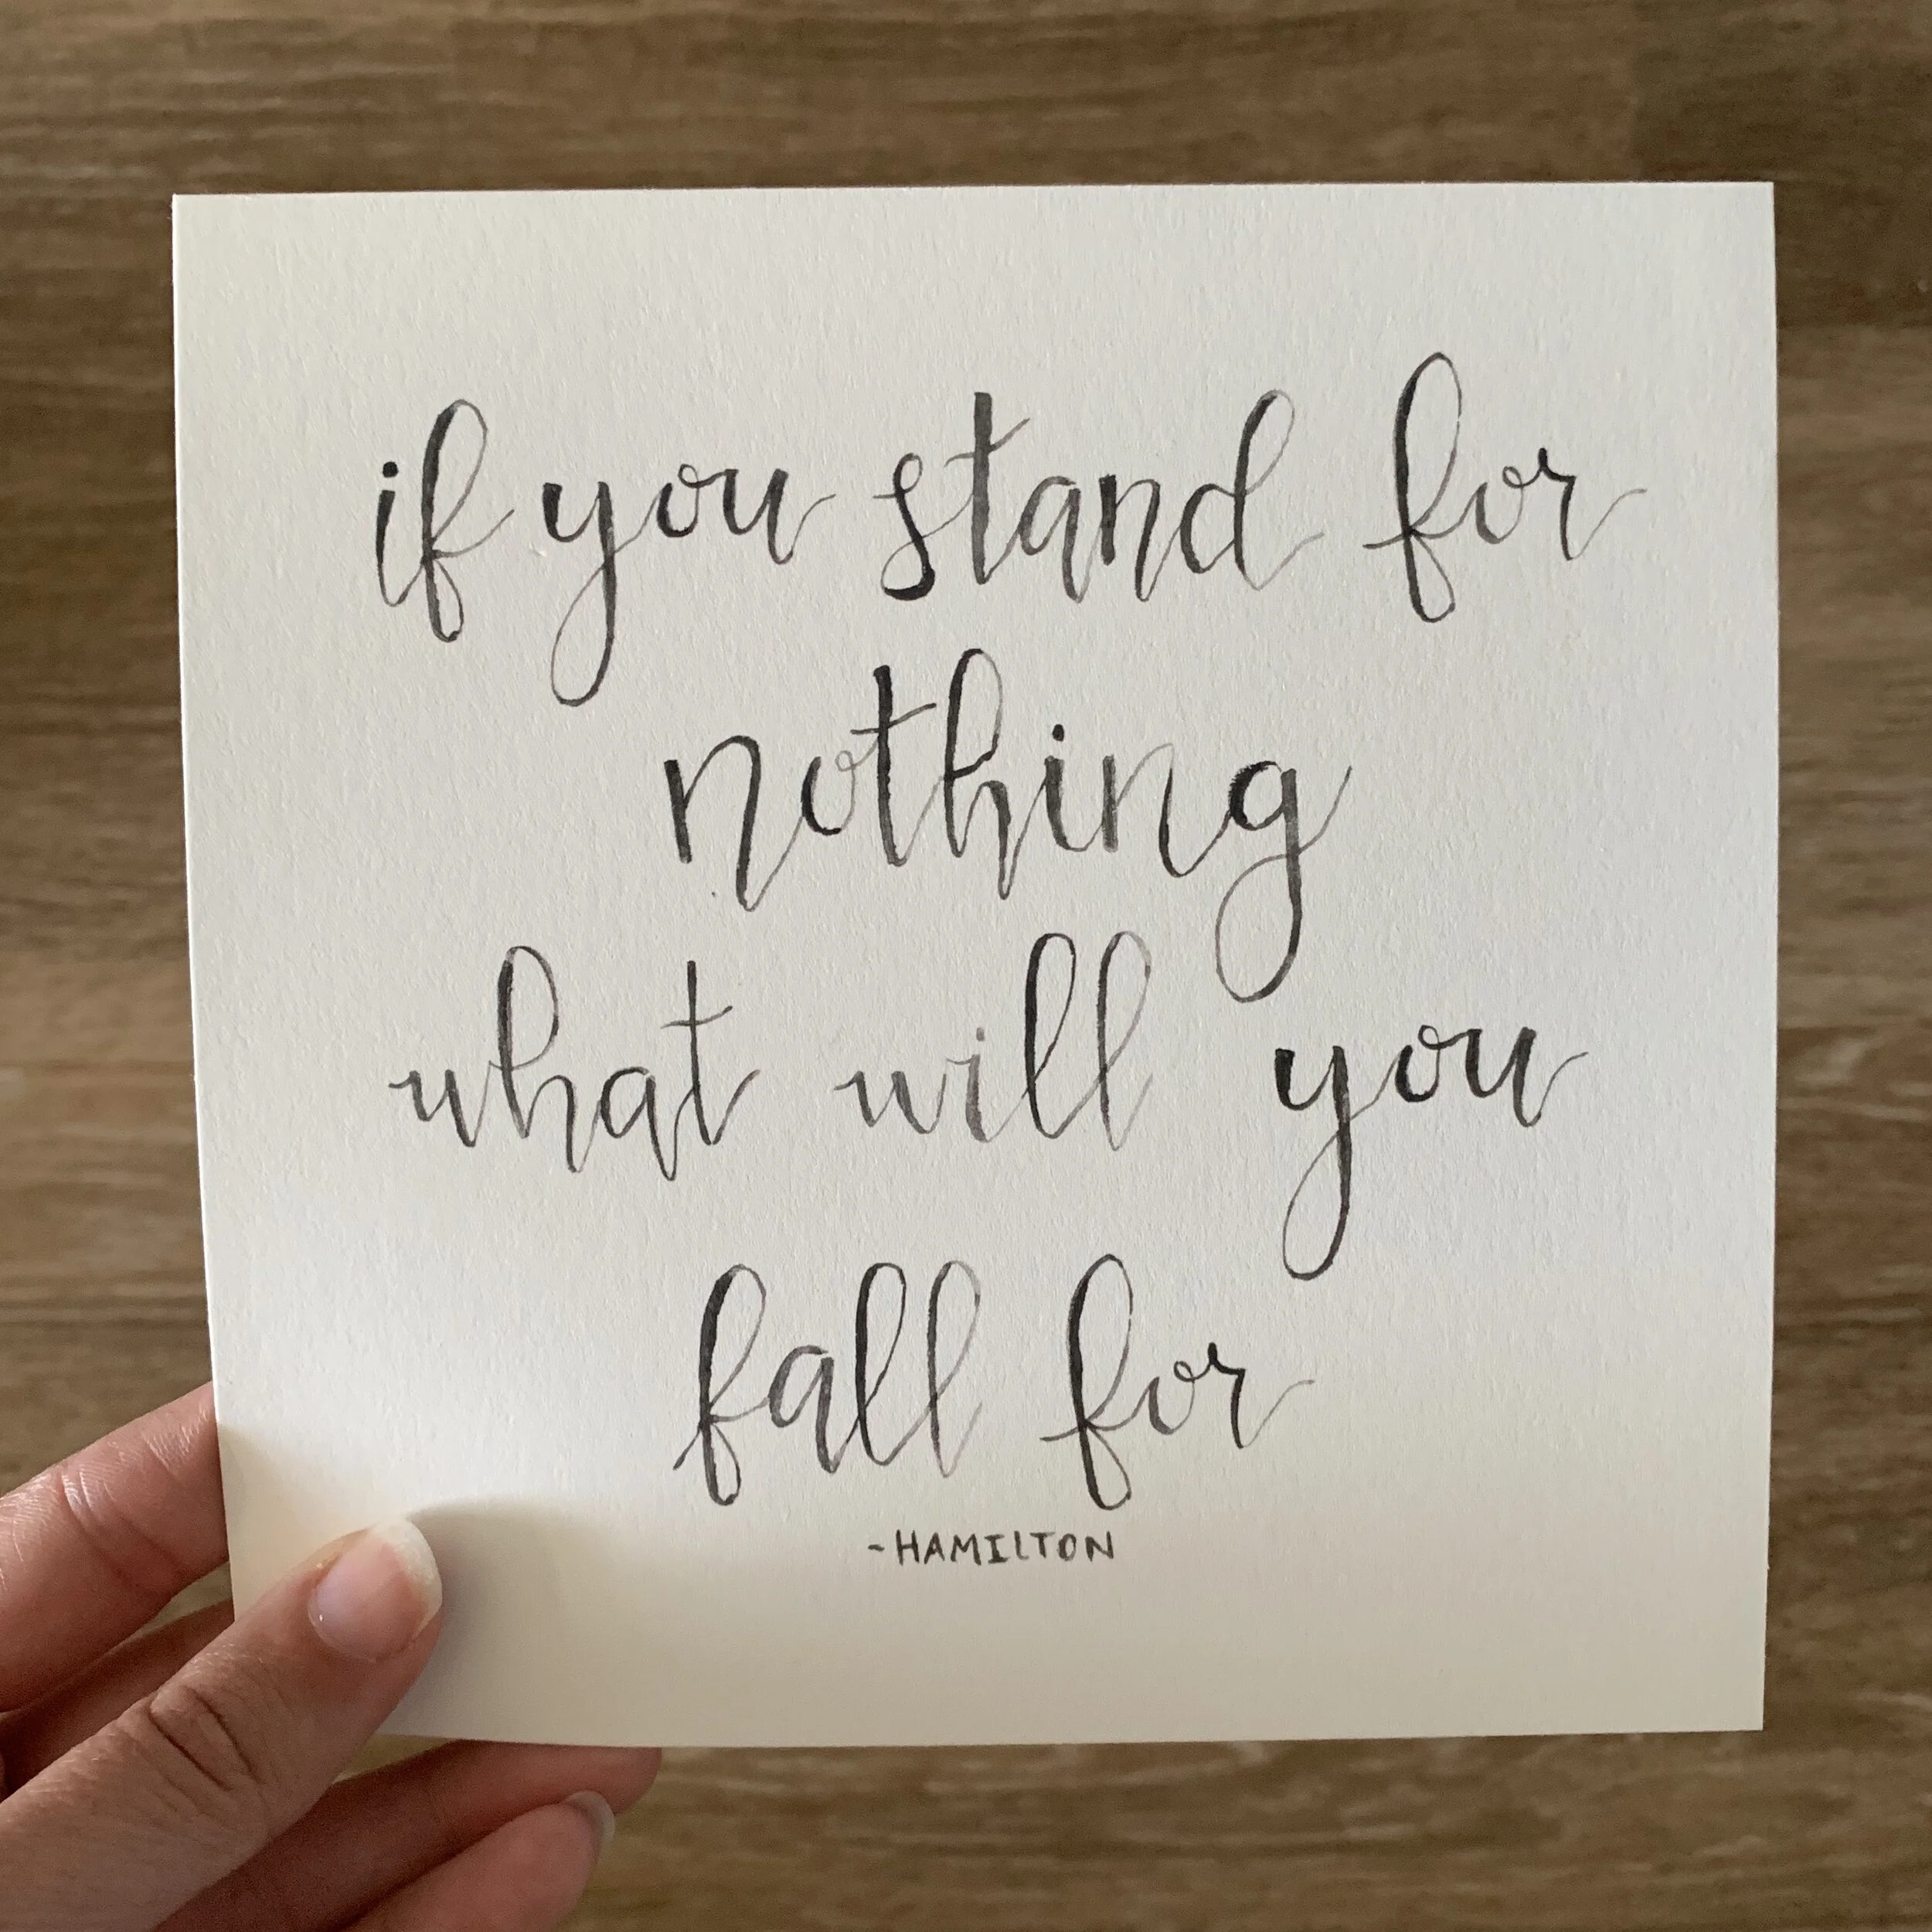 if you stand for
nothing
what will you
fall for
-HAMILTON